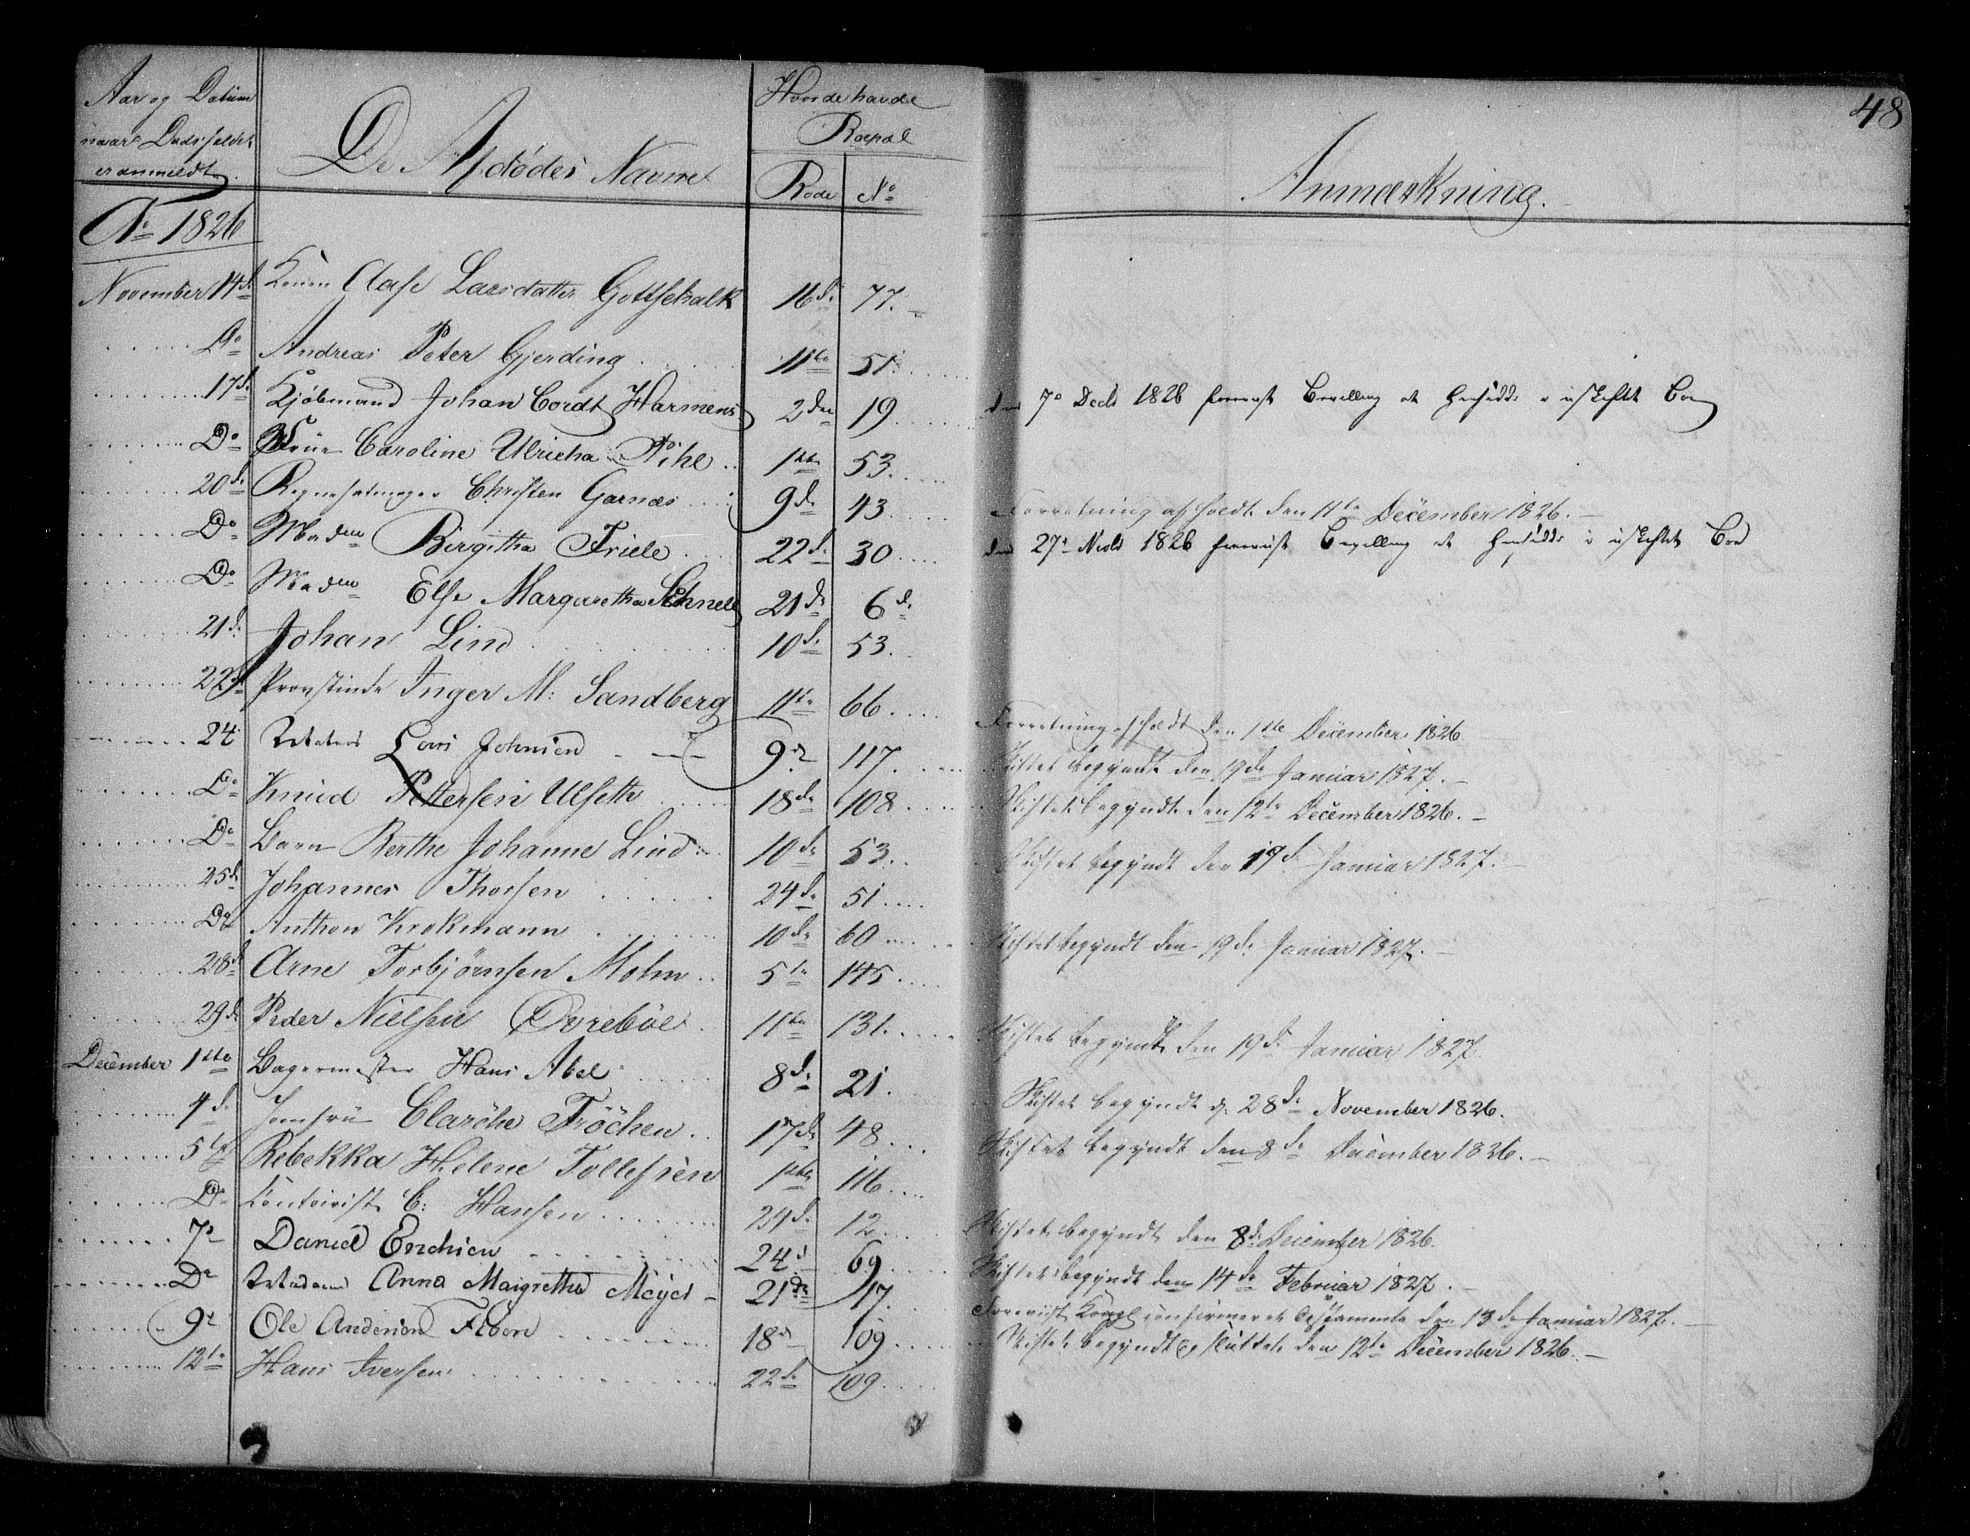 48
Aar og Datum
naar Dødsfaldet
er anmeldt.
De Afdødes Navne
Hvor de havde
Boepæl
Rode No
Anmærkning.
Ao 1826
November 14de Konen Aase Larsdatter Gottschalk 16de 77.
Do Andreas Peter Gjerding 11te 51.
17de Kjøbmand Johan Cordt Harmens 2den 19 den 7de Decbr 1826 Bevilling at hensidde i uskiftet Boe
Do Frue Caroline Ulricha Pihl 1ste 53.
20de Christen Garnæs 9de 43. Forretning afholdt den 11te December 1826.
Do Madme Birgitha Friele 22de 30 den 27de 1826 Bevilling at hensidde i uskiftet Boe
Do Madme Else Margaretha Schnell 21de 6d.
21de Johan Lind 10de 53.
22de Provstinde Inger M: Sandberg 11te 66. Forretning afholdt den 1ste December 1826
24 Lars Johnsen 9de 117. Skiftet begyndt den 19de Januar 1827.
Do Knud Pettersen Ulseth 18de 108 Skiftet begyndt den 12te December 1826.
Do Barn Berthe Johanne Lind 10de 53. Skiftet begyndt den 19de Januar 1827.
25de Johannes Thorsen 24de 51
Do Anthon Krokmann 10de 60 Skiftet begyndt den 19de Januar 1827.
28de Arne Torbjørnsen Mohn 5te 145
29de Peder Nielsen Øvrebøe 11te 131. Skiftet begyndt den 19de Januar 1827.
December 1ste Bagermester Hans Abel 8de 21. Skiftet begyndt d. 28de November 1826.
4de Jomfrue Fröchen 17de 48 Skiftet begyndt den 8de December 1826.
5te Rebekka Helene Tollefsen 1ste 116
Do Contoirist C: Hansen 24de 12 Skiftet begyndt den 8de December 1826.
7de Daniel Erichsen 24d 69 Skiftet begyndt den 14de Februar 1827.
Do Madame Anna Maigretha Meyer 21de 17. Forevist Kongl confirmeret Testamente den 13de Januar 1827.
9de Ole Andersen 18d 109 Skiftet begyndt og sluttet den 12te December 1826.
12te Hans Iversen 22de 109